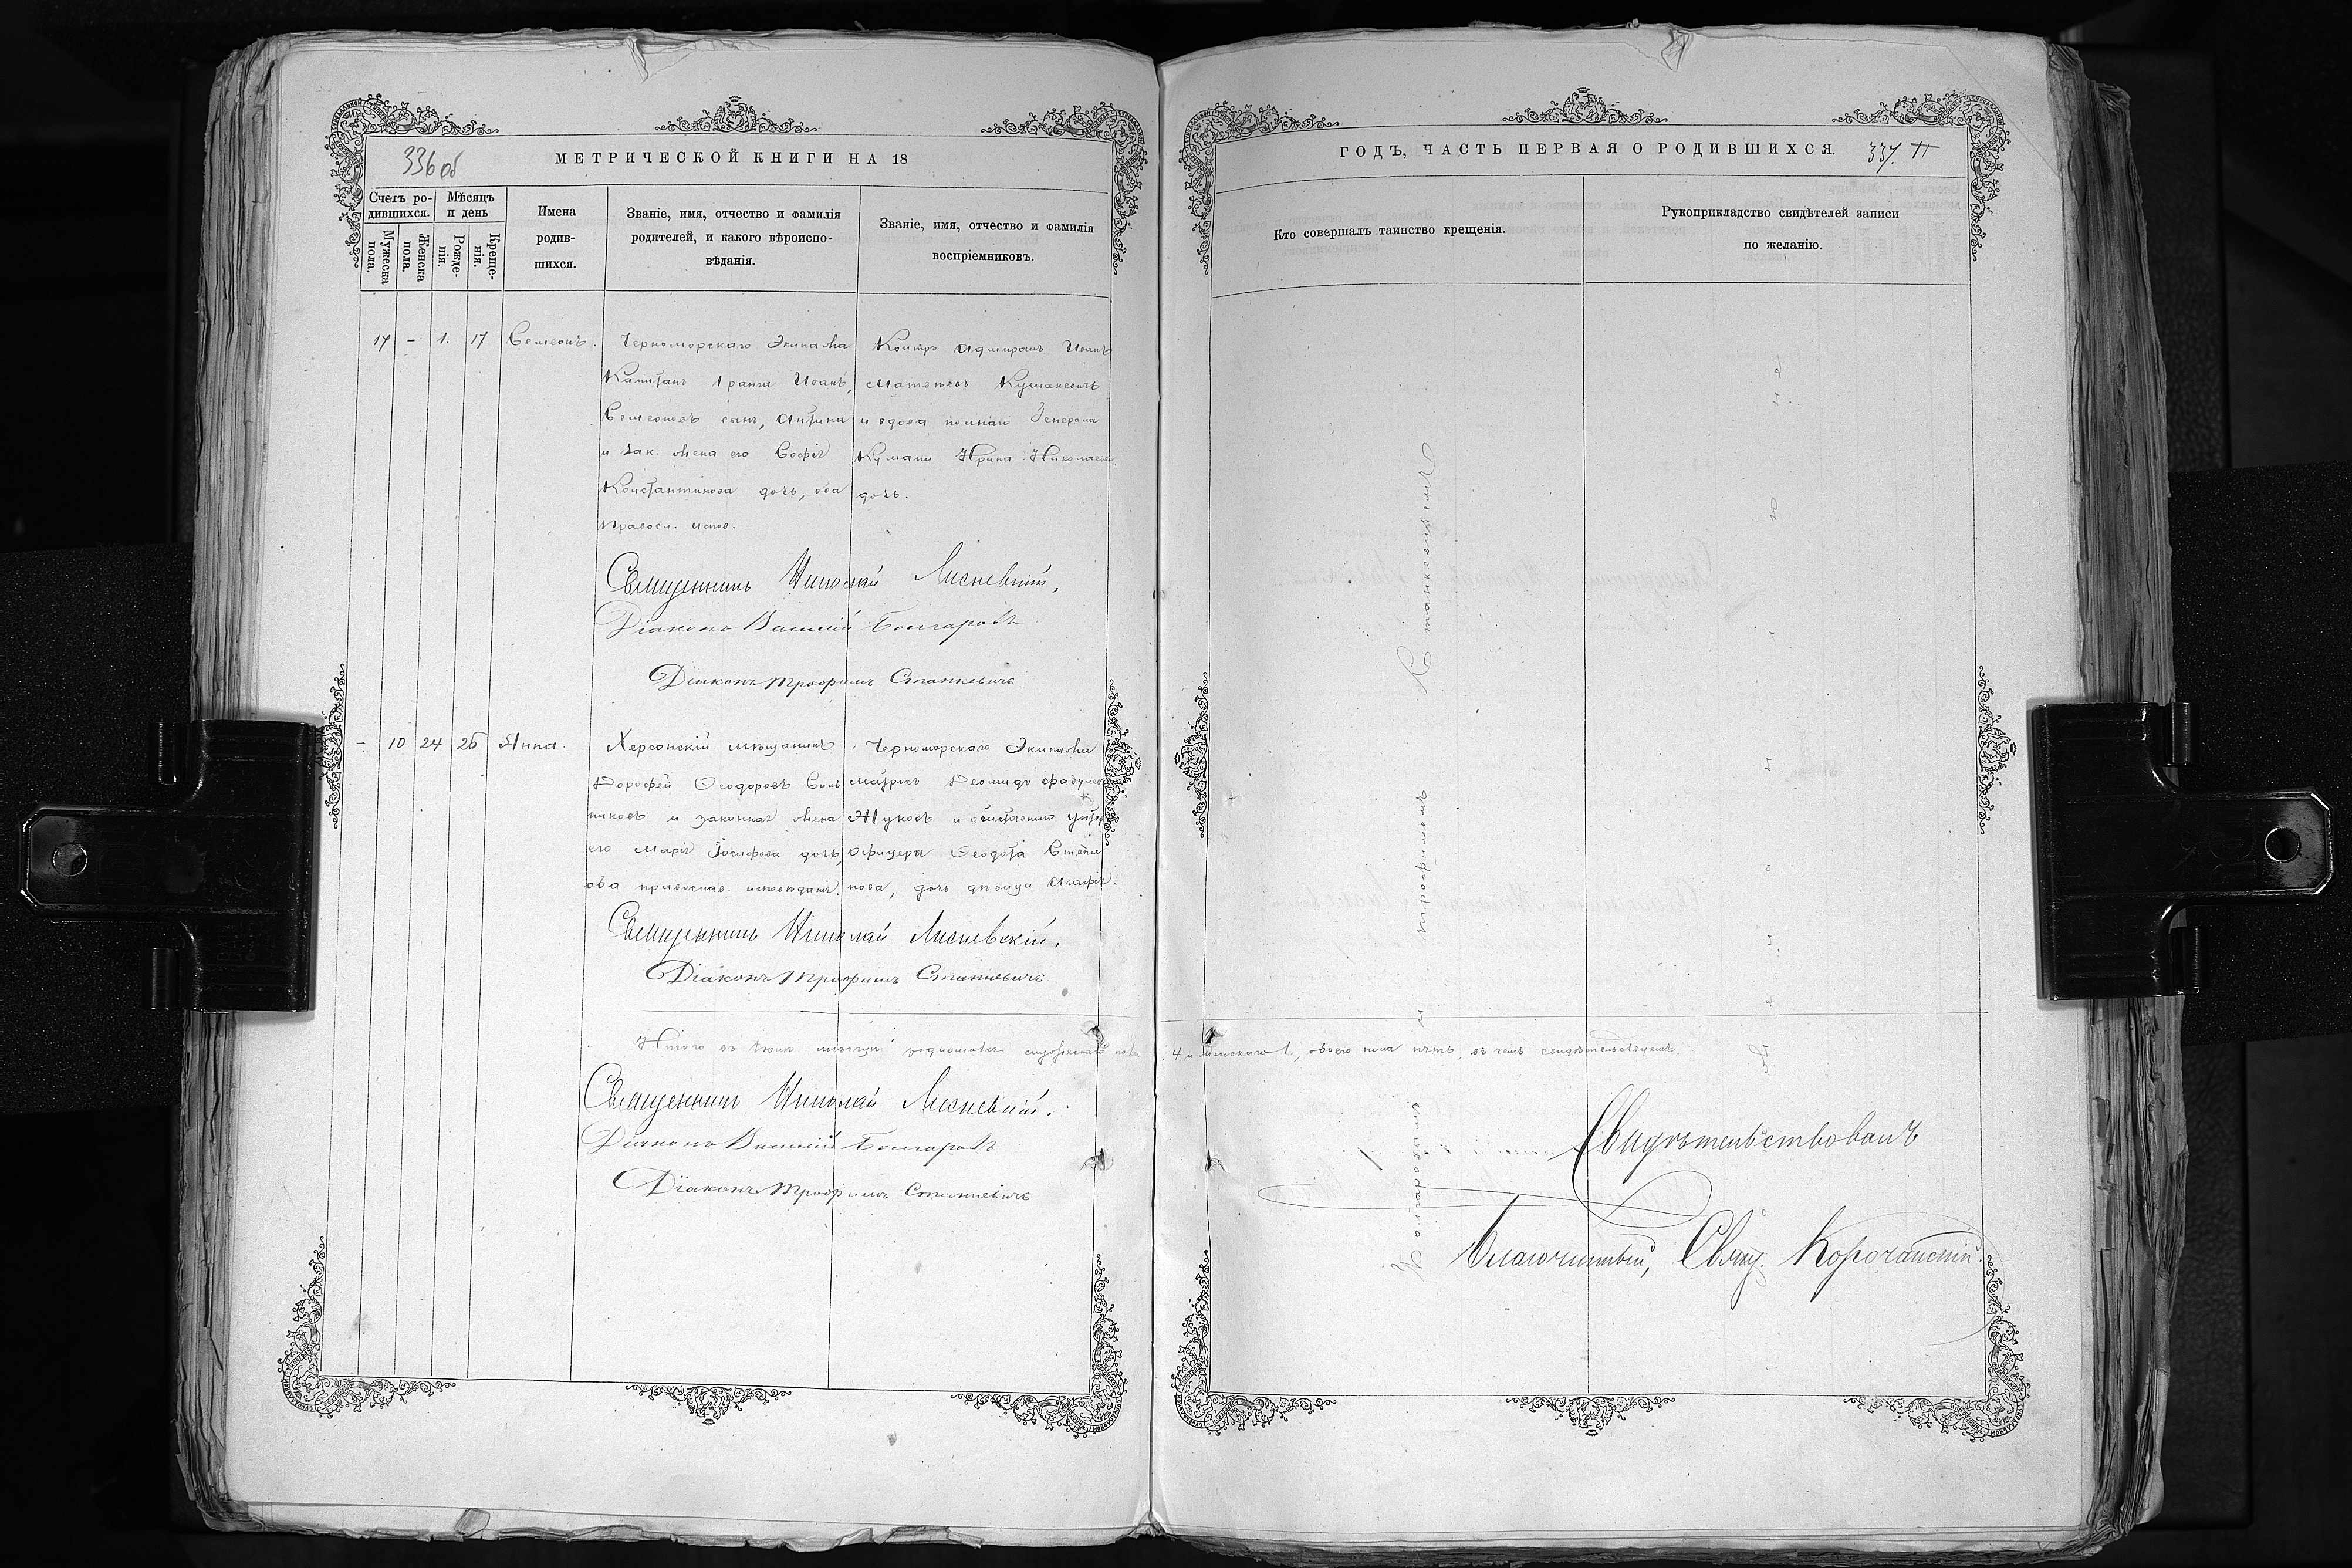 336 об
МЕТРИЧЕСКОЙ КНИГИ НА 18
Счетъ ро-
дившихся.
Мѣсяцъ
и день
Мужеска
пола.
Женска
пола.
Рожде-
нія.
Креще-
нія.
Имена
родив-
шихся.
Званіе, имя, отчество и фамилія
родителей, и какого вѣроиспо-
вѣданія.
Званіе, имя, отчество и фамилія
воспріемниковъ.
17 - 1. 17 Семеонъ.
Черноморскаго Экипажа
Капитанъ 1 ранга Иванъ,
Семеоновъ сынъ,
и зак. жена его Софія
Константинова дочь, оба
Правосл. испов.
Контръ Адмиралъ Иванъ
Матвѣевъ
и вдова полнаго Генерала
Кумани Ирина Николаева
дочь.
Священникъ Николай Лисневскій,
Діаконъ Василій Болгаровъ
Діаконъ Трофимъ Станкевичъ
- 10 24 26 Анна.
Херсонскій мѣщанинъ
Дорофей Ѳеодоровъ
никовъ и законная жена
его Марія Іосифова дочь,
оба православ. исповѣданія.
Черноморскаго Экипажа
матросъ Деомидъ
Жуковъ и отставнаго унтеръ
офицера Ѳеодота Степа
нова, дочь дѣвица Агафія.
Священникъ Николай Лисневскій.
Діаконъ Трофимъ Станкевичъ
Итого въ мѣсяцѣ родившихся мужескаго пола 4 и женскаго 1., обоего пола пять, въ чемъ свидѣтельствуемъ
Священникъ Николай Лисневскій.
Діаконъ Василій Болгаровъ
Діаконъ Трофимъ Станкевичъ
ГОДЪ, ЧАСТЬ ПЕРВАЯ О РОДИВШИХСЯ.
337.
Кто совершалъ таинство крещенія.
Рукоприкладство свидѣтелей записи
по желанію.
Свидѣтельствовалъ
Благочинный, Свящ. Корочанскій.